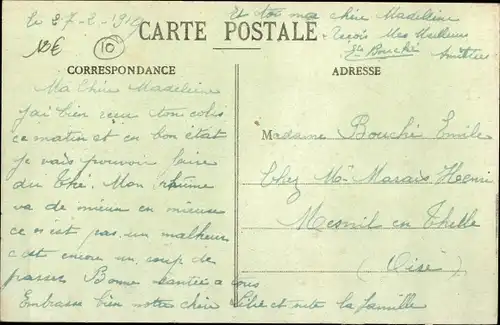 le 27-2-1919
Et toi ma chère Madeleine
reçois mes meilleures
amitiés
Bouché
12€
10
CARTE POSTALE
CORRESPONDANCE
ADRESSE
Ma Chère Madeleine
j'ai bien reçu ton colis
ce matin et en bon état
je vais pouvoir faire
du thé. Mon rhume
va de mieux en mieux
ce n'est pas un malheur
c'est encore un coup de
passer Bonne santée a tous
Embrasse bien notre chère et toute la famille
Madame Bouché Emile
Chez Mr Marais Henri
Mesnil en Thelle
(Oise)